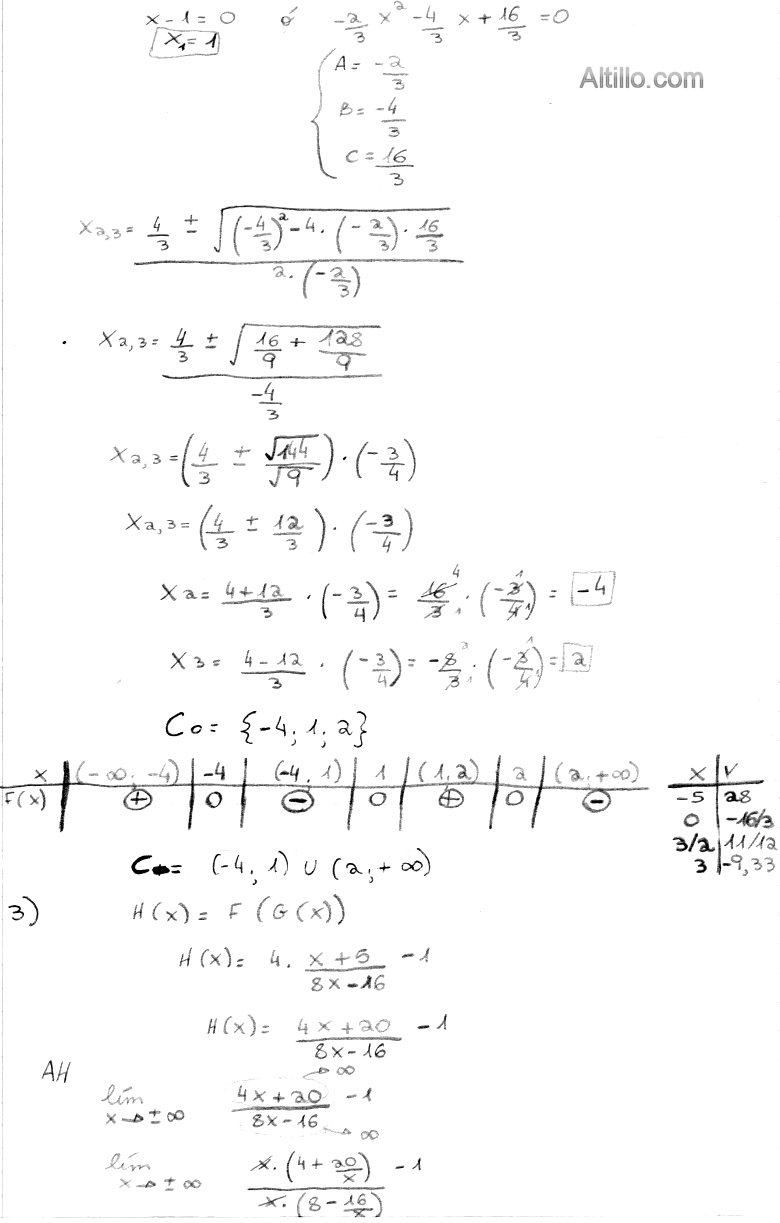 x - 1 = 0 ó -2/3 x² - 4/3 x + 16/3 = 0
x₁ = 1
Altillo.com
A = -2/3
B = -4/3
C = 16/3
X2,3 = (4/3 ± √((-4/3)² - 4 · (-2/3) · 16/3)) / (2 · (-2/3))
X2,3 = (4/3 ± √(16/9 + 128/9)) / (-4/3)
X2,3 = (4/3 ± √144/√9) · (-3/4)
X2,3 = (4/3 ± 12/3) · (-3/4)
X2 = (4+12)/3 · (-3/4) = 16/3 · (-3/4) = -4
X3 = (4-12)/3 · (-3/4) = -8/3 · (-3/4) = 2
Co = {-4; 1; 2}
x | (-∞; -4) | -4 | (-4; 1) | 1 | (1; 2) | 2 | (2; +∞)
F(x) | + | 0 | - | 0 | + | 0 | -
X | V
-5 | 28
0 | -16/3
3/2 | 11/12
3 | -9,33
C- = (-4; 1) ∪ (2; +∞)
3) H(x) = F(G(x))
H(x) = 4 · (x+5)/(8x-16) - 1
H(x) = (4x+20)/(8x-16) - 1
AH
lím x→±∞ (4x+20 →∞)/(8x-16 →∞) - 1
lím x→±∞ (x · (4 + 20/x))/(x · (8 - 16/x)) - 1